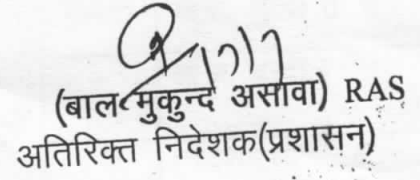 (बाल मुकुन्द असावा) RAS
अतिरिक्त निदेशक(प्रशासन)